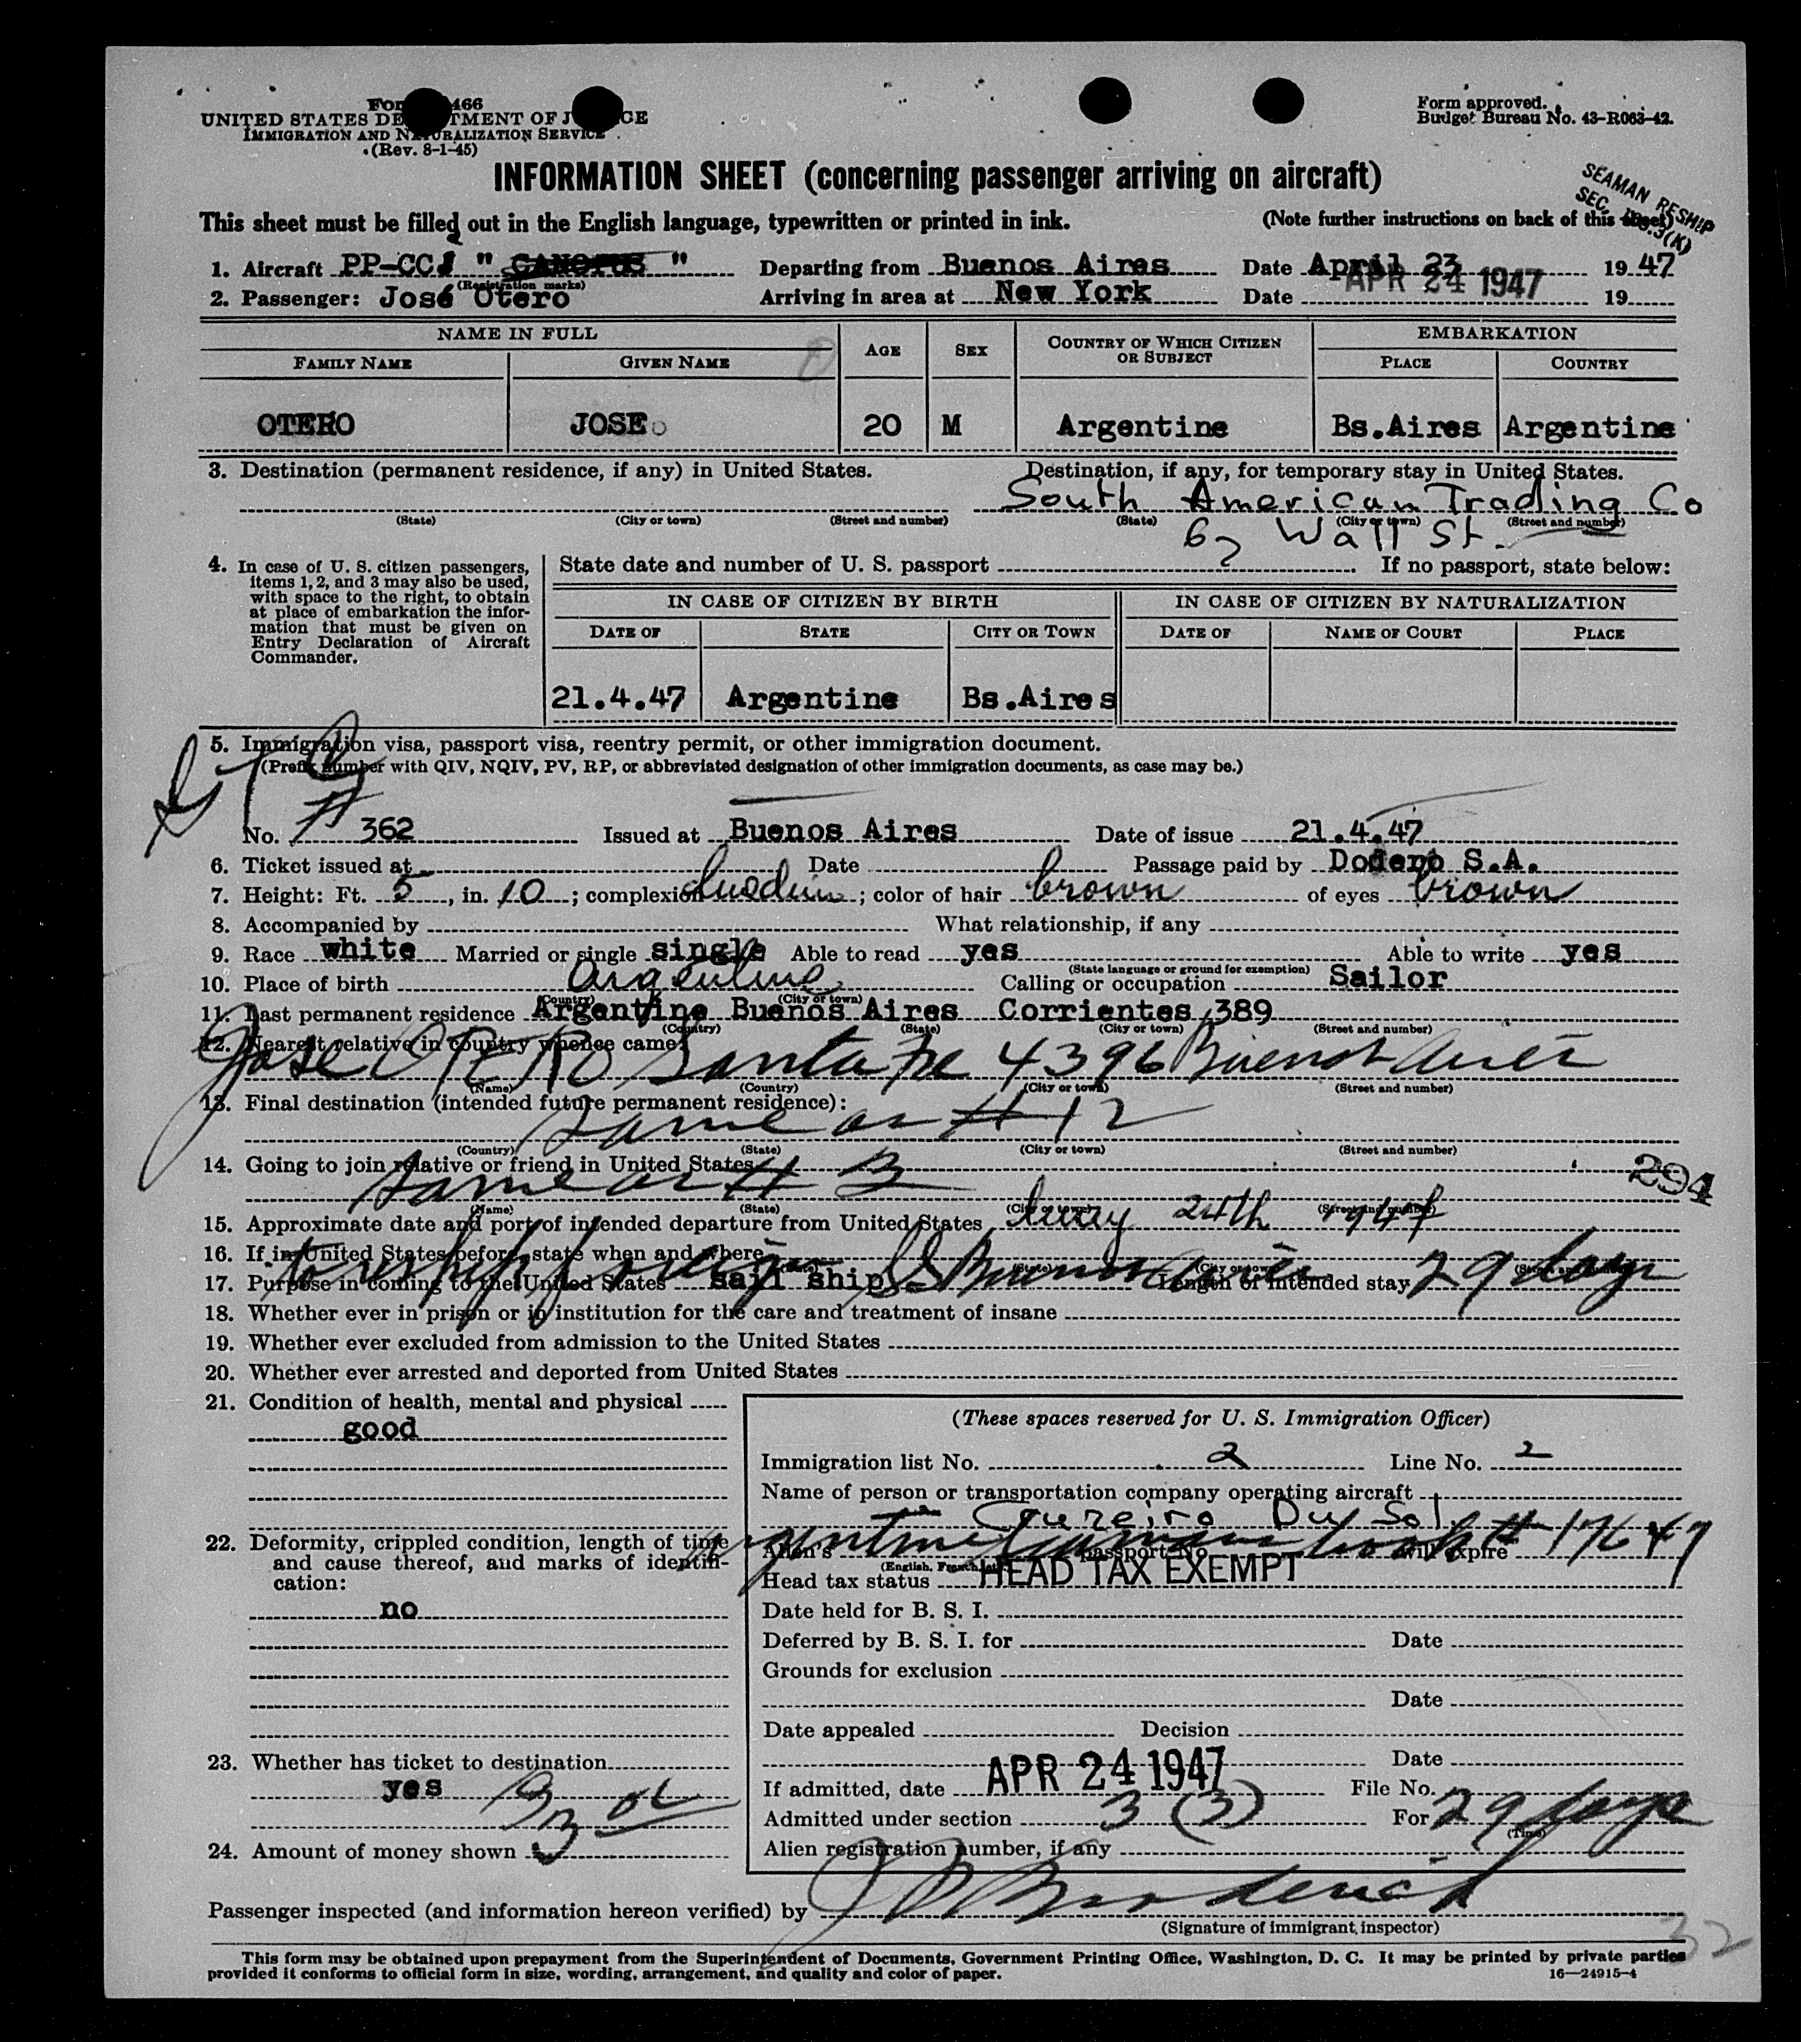 Form I-466
UNITED STATES DEPARTMENT OF JUSTICE
IMMIGRATION AND NATURALIZATION SERVICE
(Rev. 8-1-45)
Form approved.
Budget Bureau No. 43-R063-42.
INFORMATION SHEET (concerning passenger arriving on aircraft)
SEAMAN RESHIP
SEC. (K)
This sheet must be filled out in the English language, typewritten or printed in ink. (Note further instructions on back of this sheet)
1. Aircraft PP-CCJ " CANOPUS " Departing from Buenos Aires Date April 23 1947
(Registration marks)
2. Passenger: José Otero Arriving in area at New York Date APR 24 1947 19
NAME IN FULL AGE SEX COUNTRY OF WHICH CITIZEN OR SUBJECT EMBARKATION
FAMILY NAME GIVEN NAME PLACE COUNTRY
OTERO JOSE 20 M Argentine Bs.Aires Argentine
3. Destination (permanent residence, if any) in United States. Destination, if any, for temporary stay in United States.
South American Trading Co
(State) (City or town) (Street and number) (State) (City or town) (Street and number)
67 Wall St.
4. In case of U. S. citizen passengers, items 1, 2, and 3 may also be used, with space to the right, to obtain at place of embarkation the information that must be given on Entry Declaration of Aircraft Commander.
State date and number of U. S. passport If no passport, state below:
IN CASE OF CITIZEN BY BIRTH IN CASE OF CITIZEN BY NATURALIZATION
DATE OF STATE CITY OR TOWN DATE OF NAME OF COURT PLACE
21.4.47 Argentine Bs.Aires
5. Immigration visa, passport visa, reentry permit, or other immigration document.
(Prefix number with QIV, NQIV, PV, RP, or abbreviated designation of other immigration documents, as case may be.)
No. # 362 Issued at Buenos Aires Date of issue 21.4.47
6. Ticket issued at Date Passage paid by Dodero S.A.
7. Height: Ft. 5, in. 10; complexion medium; color of hair brown of eyes brown
8. Accompanied by What relationship, if any
9. Race white Married or single single Able to read yes Able to write yes
(State language or ground for exemption)
10. Place of birth Argentina Calling or occupation Sailor
(Country) (City or town)
11. Last permanent residence Argentine Buenos Aires Corrientes 389
(Country) (State) (City or town) (Street and number)
12. Nearest relative in country whence came:
Jose OTERO Santa Fe 4396 Buenos Aires
(Name) (Country) (City or town) (Street and number)
13. Final destination (intended future permanent residence):
same as # 12
(Country) (State) (City or town) (Street and number)
14. Going to join relative or friend in United States
same as # 3
294
(Name) (State) (City or town) (Street and number)
15. Approximate date and port of intended departure from United States May 24th 1947
16. If in United States before, state when and where
to reship foreign SS Buenos Aires 29 days
(Date) (State) (City or town) (Street and number)
17. Purpose in coming to the United States sail ship Length of intended stay
18. Whether ever in prison or in institution for the care and treatment of insane
19. Whether ever excluded from admission to the United States
20. Whether ever arrested and deported from United States
21. Condition of health, mental and physical
good
22. Deformity, crippled condition, length of time and cause thereof, and marks of identification:
no
23. Whether has ticket to destination
yes
24. Amount of money shown
(These spaces reserved for U. S. Immigration Officer)
Immigration list No. 2 Line No. 2
Name of person or transportation company operating aircraft
Cruzeiro Du Sol
Argentine seamans book # 17647
Alien's passport No. will expire
Head tax status HEAD TAX EXEMPT
Date held for B. S. I.
Deferred by B. S. I. for Date
Grounds for exclusion
Date
Date appealed Decision
Date
If admitted, date APR 24 1947 File No.
Admitted under section 3 (3) For 29 days
(Time)
Alien registration number, if any
Passenger inspected (and information hereon verified) by
(Signature of immigrant inspector)
32
This form may be obtained upon prepayment from the Superintendent of Documents, Government Printing Office, Washington, D. C. It may be printed by private parties
provided it conforms to official form in size, wording, arrangement, and quality and color of paper. 16—24915-4